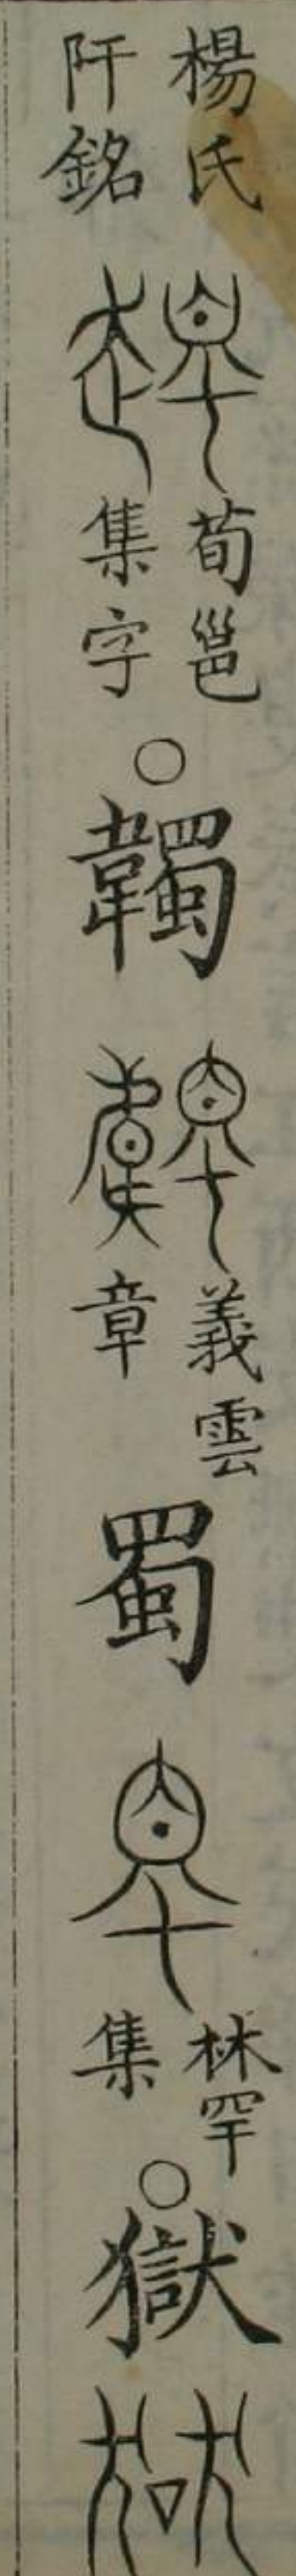 楊氏
阡銘
荀邕
集字
○
韣
義雲
章
蜀
林罕
集
○
獄